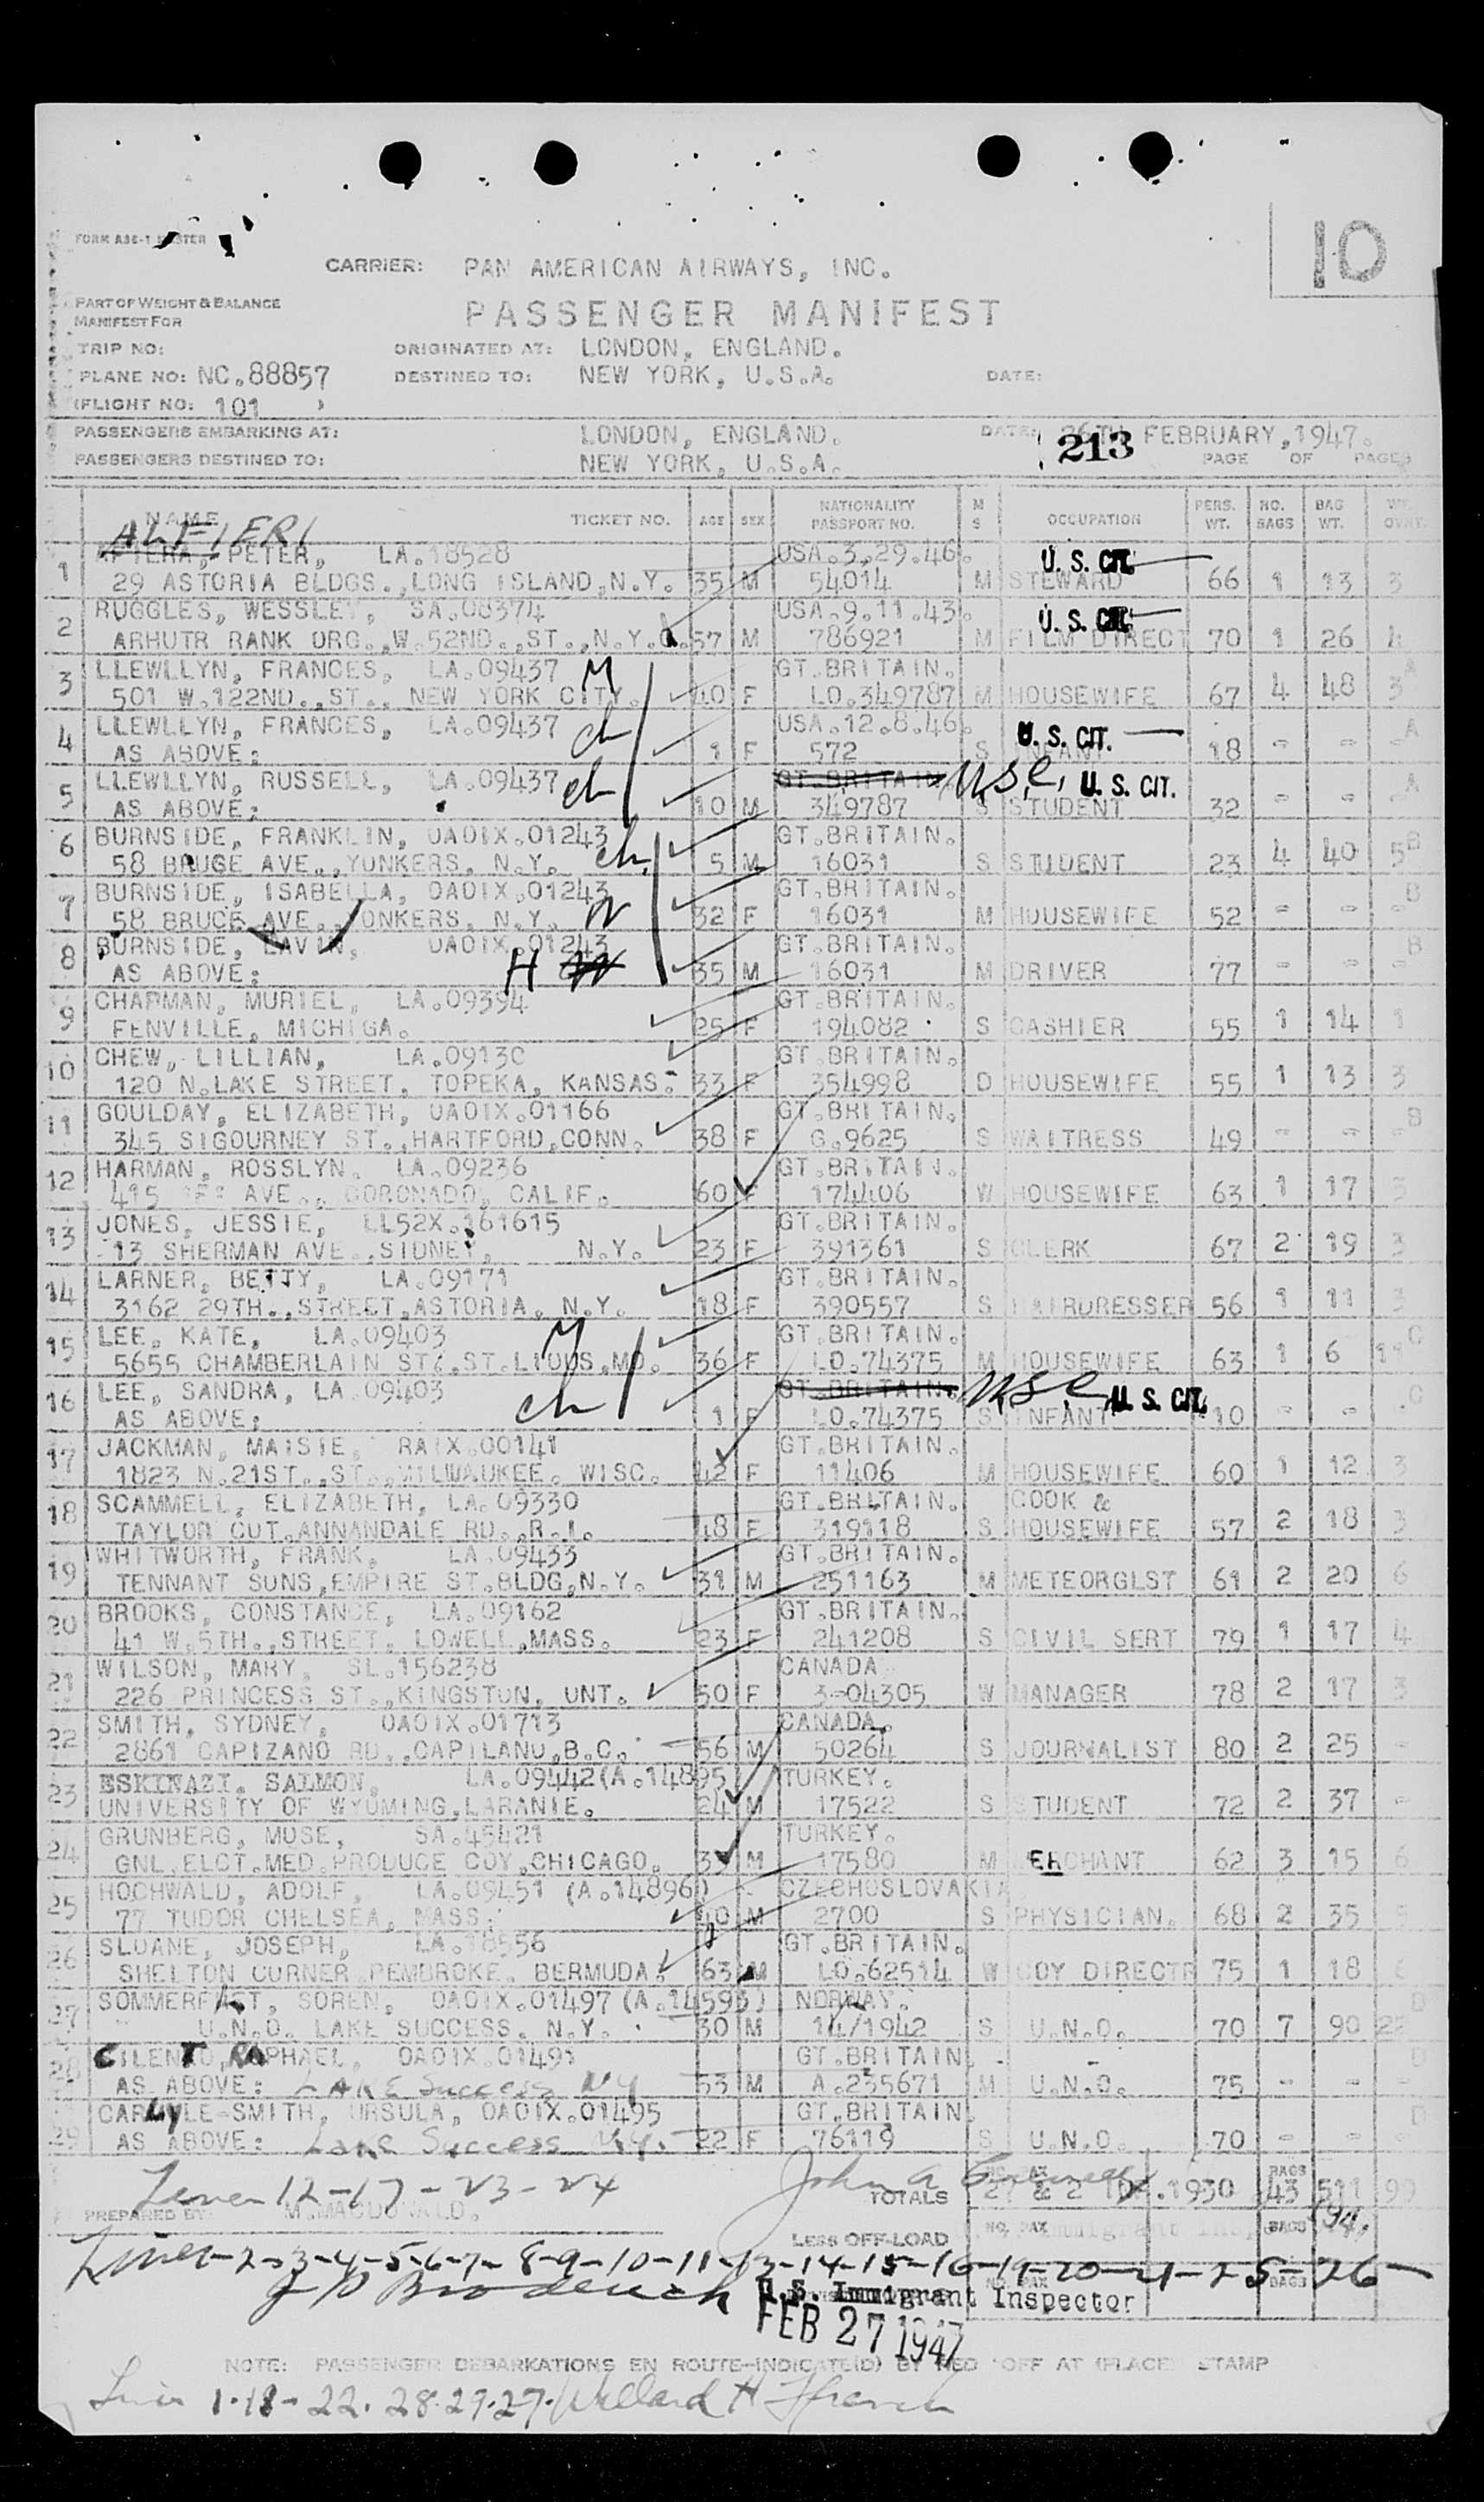 FORM ASE-1 MASTER
10
CARRIER: PAN AMERICAN AIRWAYS, INC.
PART OF WEIGHT & BALANCE
MANIFEST FOR
PASSENGER MANIFEST
TRIP NO: ORIGINATED AT: LONDON, ENGLAND.
PLANE NO: NC.88857 DESTINED TO: NEW YORK, U.S.A. DATE:
(FLIGHT NO: 101 )
PASSENGERS EMBARKING AT: LONDON, ENGLAND. DATE: 26TH FEBRUARY, 1947.
213
PASSENGERS DESTINED TO: NEW YORK, U.S.A. PAGE OF PAGES
NAME TICKET NO. AGE SEX NATIONALITY PASSPORT NO. M S OCCUPATION PERS. WT. NO. BAGS BAG WT.
ALFIERI
1 PETER, LA.18528 USA.3.29.46. U. S. CIT.
29 ASTORIA BLDGS.,LONG ISLAND,N.Y. 35 M 54014 M STEWARD 66 1 13 3
2 RUGGLES, WESSLEY, SA.08374 USA.9.11.43. U. S. CIT.
ARHUTR RANK ORG.,W.52ND.,ST.,N.Y. 57 M 786921 M FILM DIRECT 70 1 26 4
3 LLEWLLYN, FRANCES, LA.09437 M GT.BRITAIN.
501 W.122ND.,ST., NEW YORK CITY. 40 F LO.349787 M HOUSEWIFE 67 4 48 3 A
4 LLEWLLYN, FRANCES, LA.09437 ch USA.12.8.46. U. S. CIT.
AS ABOVE: 1 F 572 S INFANT 18 - - - A
5 LLEWLLYN, RUSSELL, LA.09437 ch GT.BRITAIN USC, U. S. CIT.
AS ABOVE: 10 M 349787 S STUDENT 32 - - - A
6 BURNSIDE, FRANKLIN, OAOIX.01243 ch. GT.BRITAIN.
58 BRUGE AVE.,YONKERS, N.Y. 5 M 16031 S STUDENT 23 4 40 5 B
7 BURNSIDE, ISABELLA, OAOIX.01243 W GT.BRITAIN.
58 BRUCE AVE., YONKERS, N.Y. 32 F 16031 M HOUSEWIFE 52 - - - B
8 BURNSIDE, LAVIN, OAOIX.01243 H GT.BRITAIN.
AS ABOVE: 35 M 16031 M DRIVER 77 - - - B
9 CHAPMAN, MURIEL, LA.09394 GT.BRITAIN.
FENVILLE, MICHIGA. 25 F 194082 S CASHIER 55 1 14 1
10 CHEW, LILLIAN, LA.09130 GT.BRITAIN.
120 N.LAKE STREET, TOPEKA, KANSAS. 33 F 354998 D HOUSEWIFE 55 1 13 3
11 GOULDAY, ELIZABETH, OAOIX.01166 GT.BRITAIN.
345 SIGOURNEY ST.,HARTFORD,CONN. 38 F G.9625 S WAITRESS 49 - - - B
12 HARMAN, ROSSLYN. LA.09236 GT.BRITAIN.
415 "F" AVE., CORONADO, CALIF. 60 F 174406 W HOUSEWIFE 63 1 17 3
13 JONES, JESSIE, LL52X.161615 GT.BRITAIN.
13 SHERMAN AVE.,SIDNEY, N.Y. 23 F 391361 S CLERK 67 2 19 3
14 LARNER, BETTY, LA.09171 GT.BRITAIN.
3162 29TH.,STREET,ASTORIA, N.Y. 18 F 390557 S HAIRDRESSER 56 1 11 3
15 LEE, KATE, LA.09403 M GT.BRITAIN.
5655 CHAMBERLAIN ST.,ST.LIOUS,MO. 36 F LO.74375 M HOUSEWIFE 63 1 6 11 C
16 LEE, SANDRA, LA.09403 ch GT.BRITAIN. USC U. S. CIT.
AS ABOVE: 1 F LO.74375 S INFANT 10 - - - C
17 JACKMAN, MAISIE, RAIX.00141 GT.BRITAIN.
1823 N.21ST.,ST.,MILWAUKEE, WISC. 42 F 11406 M HOUSEWIFE 60 1 12 3
18 SCAMMELL, ELIZABETH, LA.09330 GT.BRITAIN. COOK &
TAYLOR CUT.ANNANDALE RD.,R.I. 48 F 319118 S HOUSEWIFE 57 2 18 3
19 WHITWORTH, FRANK, LA.09433 GT.BRITAIN.
TENNANT SUNS,EMPIRE ST.BLDG,N.Y. 31 M 251163 M METEORGLST 61 2 20 6
20 BROOKS, CONSTANCE, LA.09162 GT.BRITAIN.
41 W.5TH.,STREET, LOWELL,MASS. 23 F 241208 S CIVIL SERT 79 1 17 4
21 WILSON, MARY, SL.156238 CANADA
226 PRINCESS ST.,KINGSTON, ONT. 50 F 3-04305 W MANAGER 78 2 17 3
22 SMITH, SYDNEY, OAOIX.01713 CANADA.
2861 CAPIZANO RD.,CAPILANO,B.C. 56 M 50264 S JOURNALIST 80 2 25 -
23 ESKINAZI, SALMON, LA.09442(A.14895) TURKEY.
UNIVERSITY OF WYOMING,LARANIE. 24 M 17522 S STUDENT 72 2 37 -
24 GRUNBERG, MOSE, SA.45421 TURKEY.
GNL.ELCT.MED.PRODUCE COY,CHICAGO. 39 M 17580 M MERCHANT 62 3 15 6
25 HOCHWALD, ADOLF, LA.09451 (A.14896) CZECHOSLOVAKIA
77 TUDOR CHELSEA, MASS. 40 M 2700 S PHYSICIAN. 68 2 35
26 SLOANE, JOSEPH, LA.18556 GT.BRITAIN.
SHELTON CORNER PEMBROKE, BERMUDA. 63 M LO.62514 W COY DIRECTR 75 1 18
27 SOMMERFELT, SOREN, OAOIX.01497 (A.14593) NORWAY.
U.N.O. LAKE SUCCESS, N.Y. 30 M 14/1942 S U.N.O. 70 7 90 22 D
28 CILENTO, RAPHAEL, OAOIX.01491 GT.BRITAIN.
AS ABOVE: LAKE Success NY 53 M A.235671 M U.N.O. 75 - - - D
29 CARLYLE-SMITH, URSULA, OAOIX.01495 GT.BRITAIN.
AS ABOVE: Lake Success N.Y. 22 F 76119 S U.N.O. 70 - - - D
Lines 12-17-23-24 John A
TOTALS 27 & 2 1930 BAGS 43 511 99
PREPARED BY: M.MACDONALD.
LESS OFF-LOAD NO. PAX BAGS
Lines-2-3-4-5-6-7-8-9-10-11-13-14-15-16-19-20-21-25-26-
U.S. Immigrant Inspector
FEB 27 1947
NOTE: PASSENGER DEBARKATIONS EN ROUTE-INDICATE(D) BY RED "OFF AT (PLACE) STAMP
Lines 1-18-22.28.29.27. Willard H French